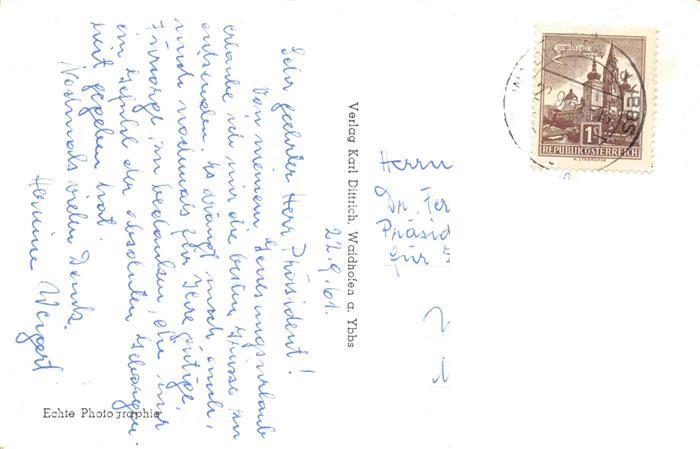 22.9.61.
Sehr geehrter Herr Präsident!
Von meinem Genesungsurlaub
erlaube ich mir die besten Grüsse zu
entsenden. Es drängt mich, auch,
mich nochmals für Ihre gütige,
Fürsorge, zu bedanken, die mir
ein Gefühl der absoluten Geborgen
heit gegeben hat.
Nochmals vielen Dank.
Hermine Weigert
Echte Photographie
Verlag Karl Dittrich, Waidhofen a. Ybbs
Herrn
Dr. Fer
Präsid
für
1S
REPUBLIK ÖSTERREICH
YBBS